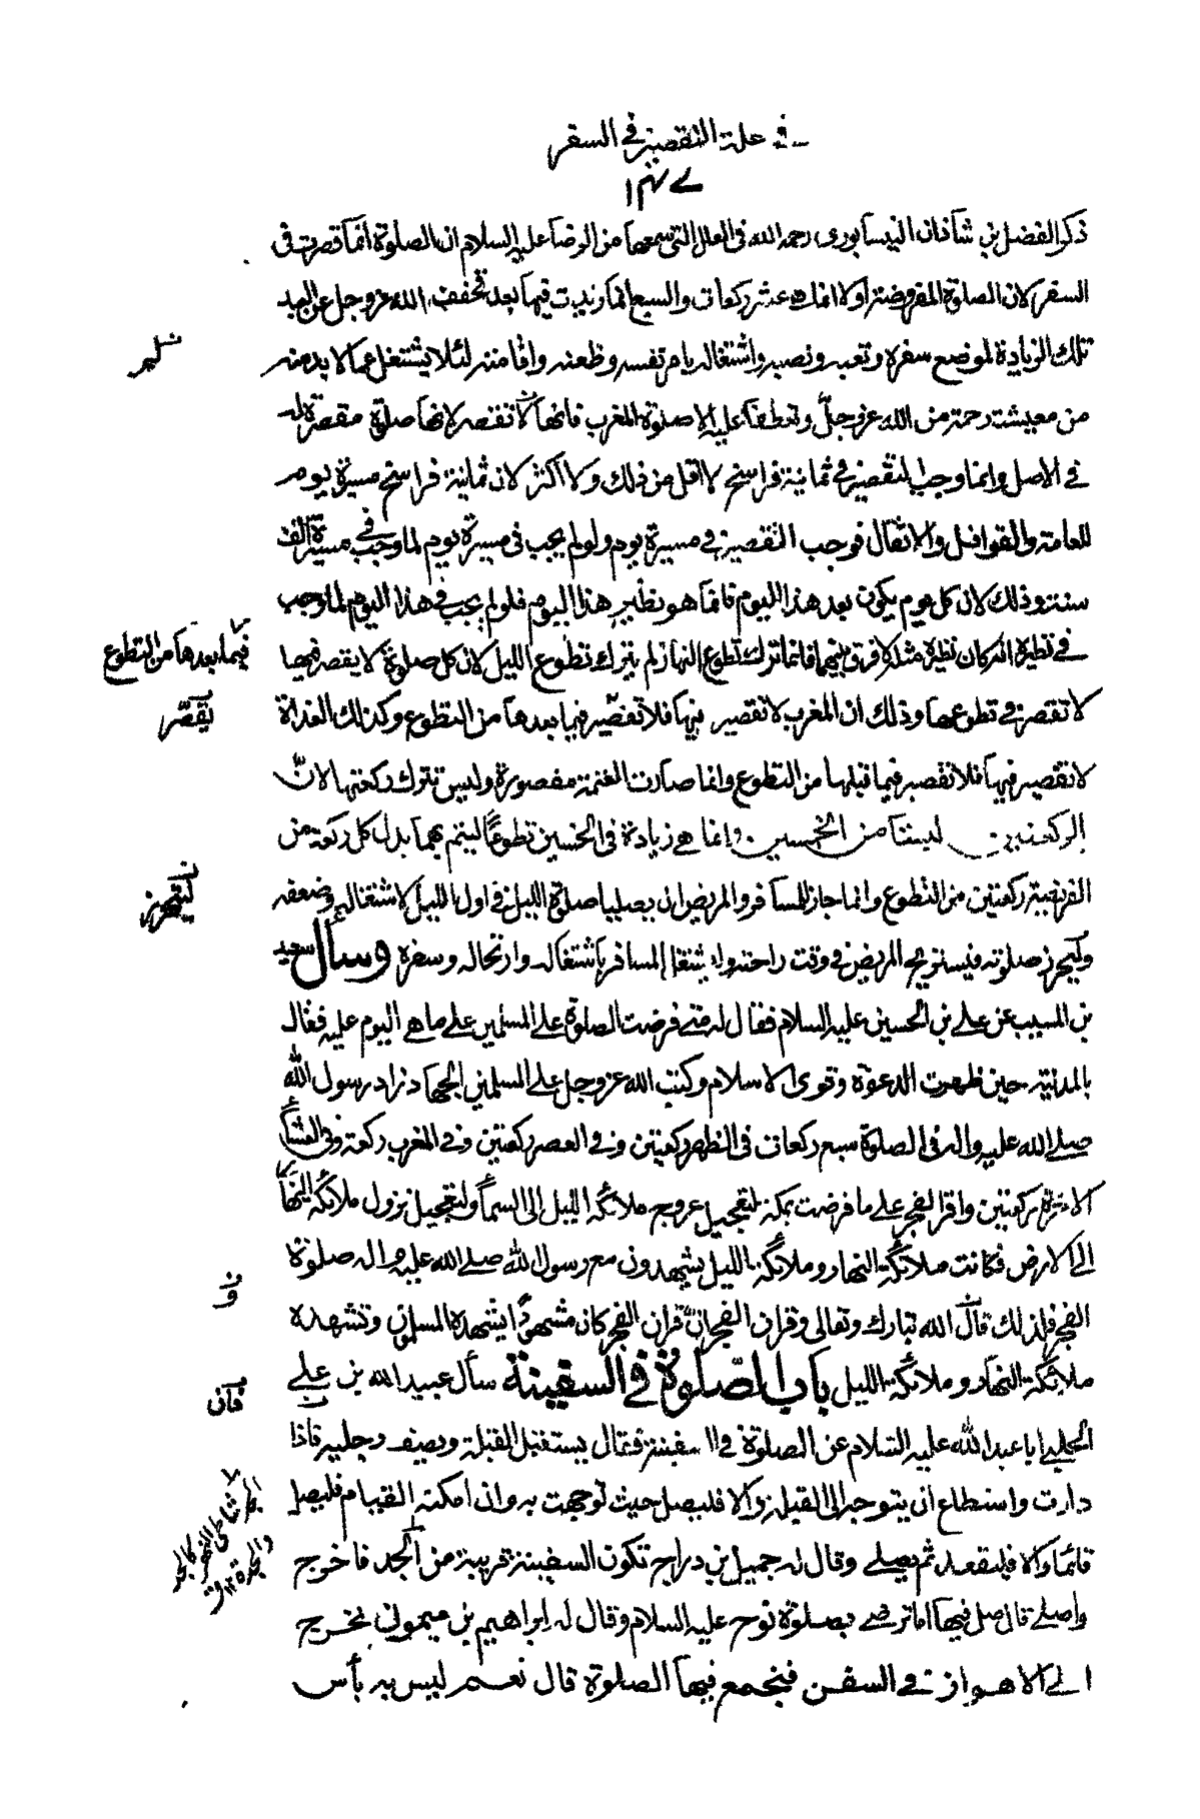 في علة التقصير في السفر
ذكر الفضل بن شاذان النيسابوري رحمه الله في العلل التي سمعها من الرضا عليه السلام ان الصلوة انما قصرت في
السفر لان الصلوة المفروضة اولا انما هي عشر ركعات والسبع انما زيدت فيها بعد فخفف الله عز وجل عن العبد
تلك الزيادة لموضع سفره وتعبه ونصبه واشتغاله بامر نفسه وظعنه واقامته لئلا يشتغل عما لا بد منه
من معيشته رحمة من الله عز وجلّ وتعطفا عليه الا صلوة المغرب فانها لا تقصر لانها صلوة مقصرة
في الاصل وانما وجب التقصير في ثمانية فراسخ لا اقل من ذلك ولا اكثر لان ثمانية فراسخ مسيرة يوم
للعامة والقوافل والاثقال فوجب التقصير في مسيرة يوم ولو لم يجب في مسيرة يوم لما وجب في مسيرة الف
سنة وذلك لان كل يوم يكون بعد هذا اليوم فانما هو نظير هذا اليوم فلو لم يجب في هذا اليوم لما وجب
في نظيره اذ كان نظيره مثله لا فرق بينهما فانما ترك تطوع النهار ولم يترك تطوع الليل لان كل صلوة لا يقصر فيها
فيما بعدها من التطوع
لا تقصر في تطوعها وذلك ان المغرب لا تقصير فيها فلا تقصير فيما بعدها من التطوع وكذلك الغداة
يقصّر
لا تقصير فيها فلا تقصير فيما قبلها من التطوع وانما صارت العتمة مقصورة وليس تترك ركعتيها لانّ
الركعتين ليستا من الخمسين وانما هي زيادة في الخمسين تطوعًا ليتم بهما بدل كل ركعة من
الفريضة ركعتين من التطوع وانما جاز للمسافر والمريض ان يصليا صلوة الليل في اول الليل لاشتغاله وضعفه
وليحرز صلوته فيستريح المريض في وقت راحته وليشتغل المسافر باشتغاله وارتحاله وسفره وسأل سعيد
بن المسيب عن علي بن الحسين عليه السلام فقال له متى فرضت الصلوة على المسلمين على ما هي اليوم عليه فقال
بالمدينة حين ظهرت الدعوة وقوى الاسلام وكتب الله عز وجل على المسلمين الجهاد زاد رسول الله
صلى الله عليه واله في الصلوة سبع ركعات في الظهر ركعتين وفي العصر ركعتين وفي المغرب ركعة وفي العشاء
الاخرة ركعتين واقر الفجر على ما فرضت بمكة لتعجيل عروج ملائكة الليل الى السماء ولتعجيل نزول ملائكة النهار
الى الارض فكانت ملائكة النهار وملائكة الليل يشهدون مع رسول الله صلى الله عليه واله صلوة
الفجر فلذلك قال الله تبارك وتعالى وقران الفجر انّ قران الفجر كان مشهودًا يشهده المسلمون وتشهده
ملائكة النهار وملائكة الليل باب الصّلوة في السفينة سأل عبيد الله بن علي
الحلبي ابا عبد الله عليه السلام عن الصلوة في السفينة فقال يستقبل القبلة ويصف رجليه فاذا
دارت واستطاع ان يتوجه الى القبلة والا فليصل حيث توجهت به وان امكنه القيام فليصل
قائما والا فليقعد ثم يصلي وقال له جميل بن دراج تكون السفينة قريبة من الجد فاخرج
واصلي قال صل فيها اما ترضى بصلوة نوح عليه السلام وقال له ابراهيم بن ميمون نخرج
الى الاهواز في السفن فنجمع فيها الصلوة قال نعم ليس به بأس